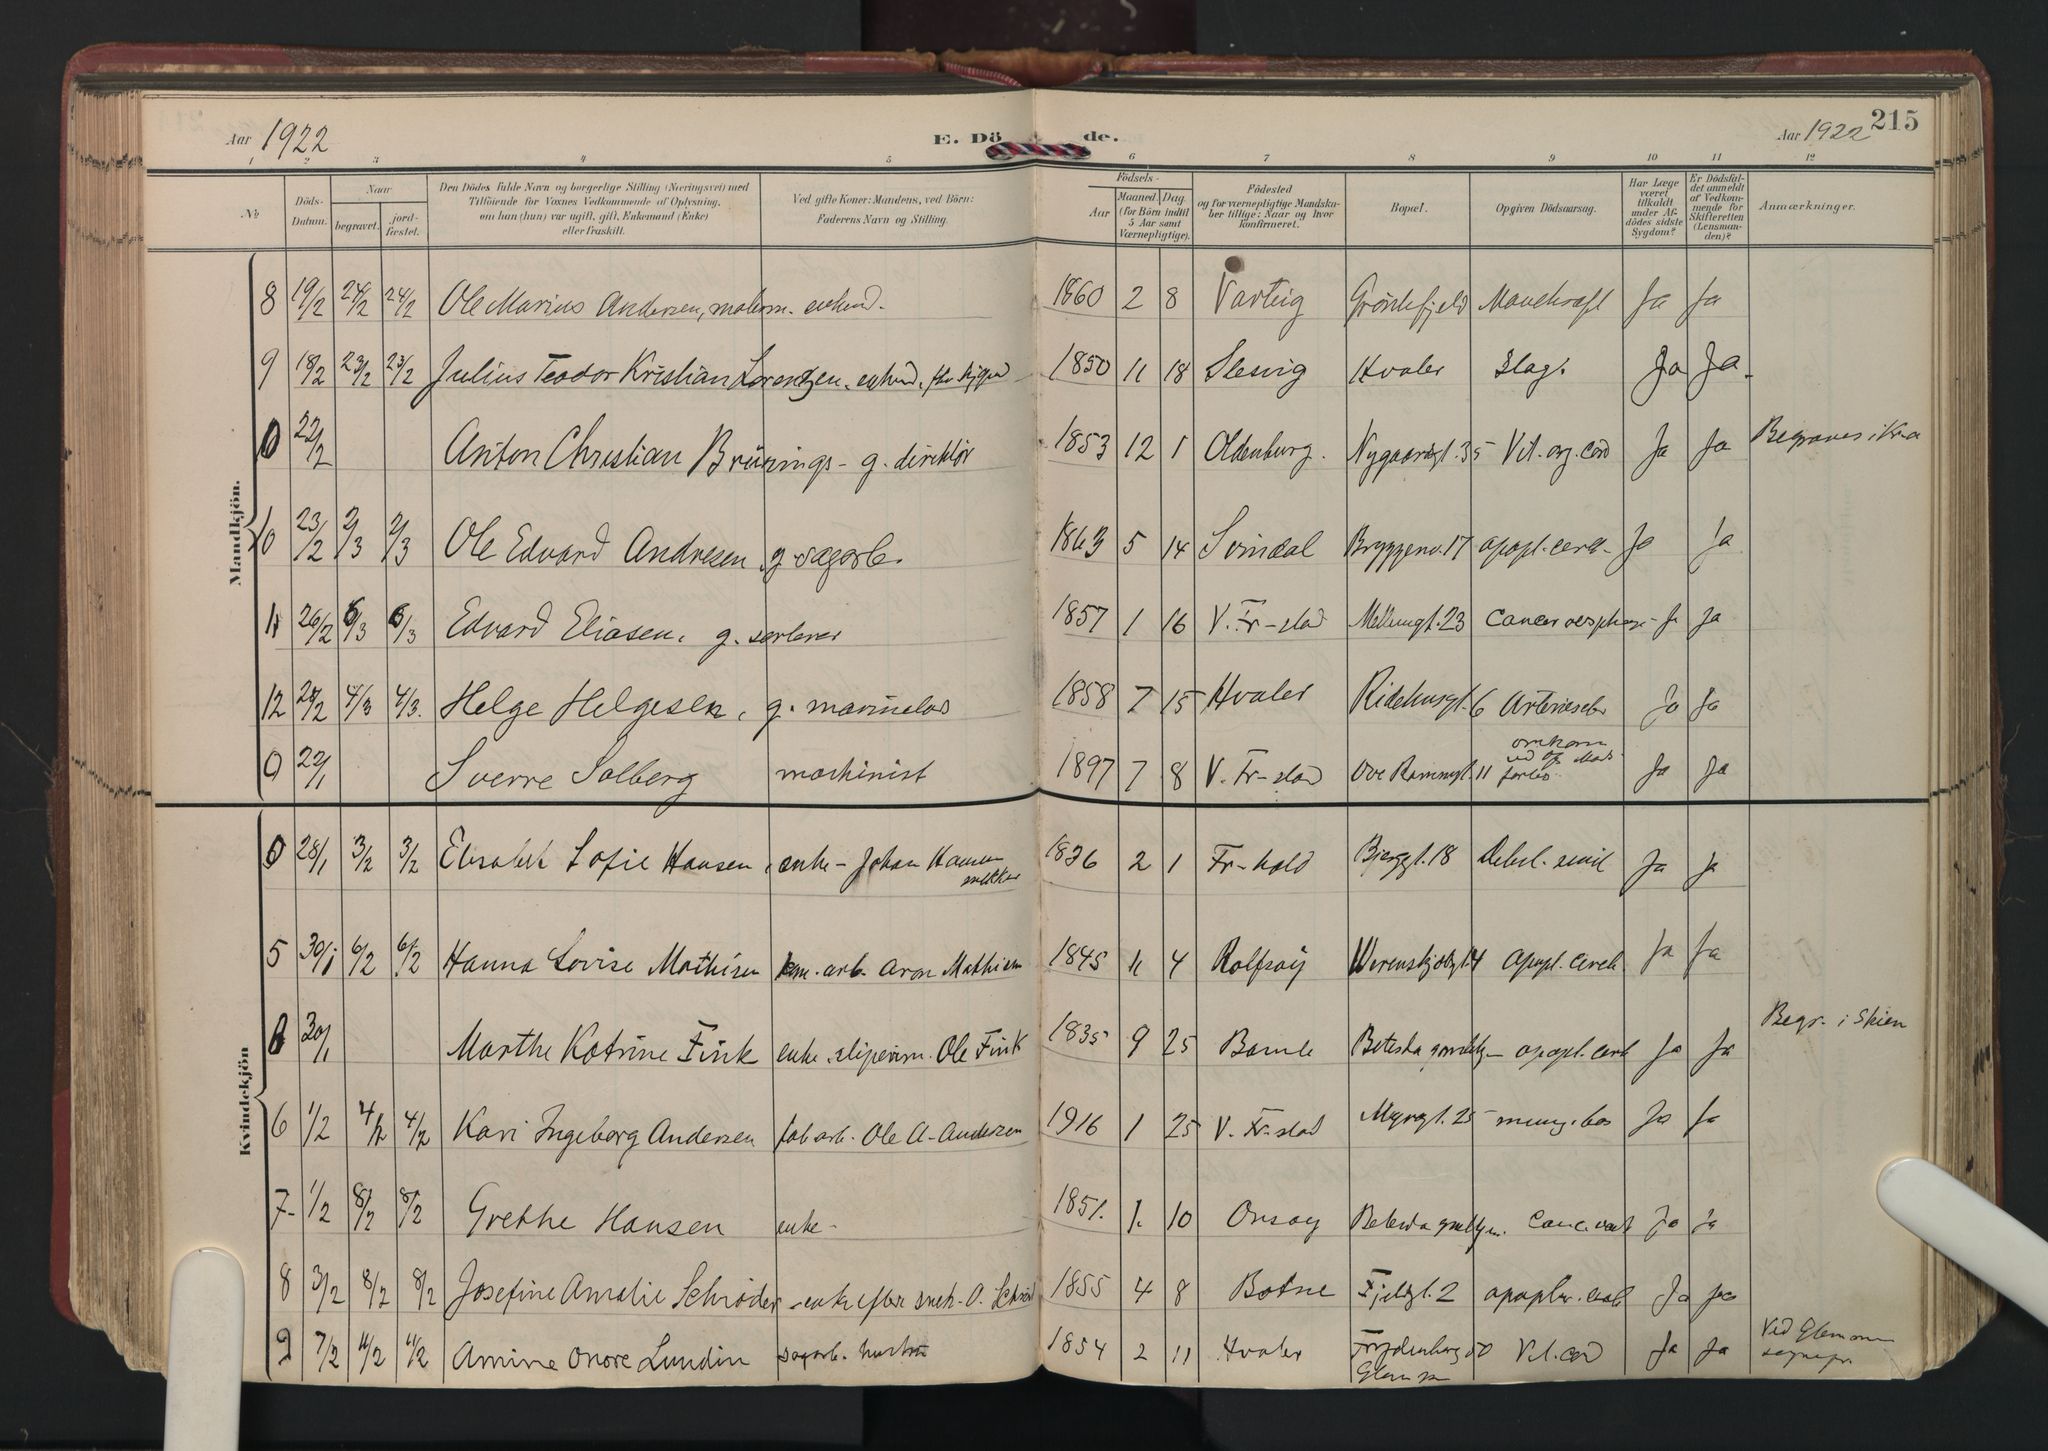 Aar 1922
E. Dö de.
Aar 1922 215
1 2 3 4 5 6 7 8 9 10 11 12
№
Döds-Datum.
Naar
begravet.
jord-fæstet.
Den Dödes fulde Navn og borgerlige Stilling (Næringsvei) med
Tilföiende for Voxnes Vedkommende af Oplysning,
om han (hun) var ugift, gift, Enkemand (Enke)
eller fraskilt.
Ved gifte Koner: Mandens, ved Börn:
Faderens Navn og Stilling.
Födsels-
Aar
Maaned. Dag.
(for Börn indtil
5 Aar samt
Værnepligtige).
Födested
og for værnepligtige Mandska-
ber tillige: Naar og hvor
konfirmeret.
Bopæl.
Opgiven Dödsaarsag.
Har Læge
været
tilkaldt
under Af-
dödes sidste
Sygdom?
Er Dödsfal-
det anmeldt
af Vedkom-
mende for
Skifteretten
(Lensman-
den)?
Anmærkninger.
Mandkjön.
8 19/2 24/2 24/2 Ole Marius Andersen, malerm. enkem. 1860 2 8 Varteig Ja Ja
9 18/2 23/2 23/2 Julius Teodor Kristian Lorentzen, enkem. 1850 11 18 Slesvig Hvaler Slag. Ja Ja.
0 22/2 Anton Christian Brünings - g. direktör 1853 12 1 Oldenburg. Nygaardsgt. 35 Vit. org. cord Ja Ja Begraves i Kr.a
10 23/2 2/3 2/3 Ole Edvard Andresen g. sagarb. 1863 5 14 Svindal Bryggeriv. 17 apopl. cereb. Ja Ja
11 26/2 6/3 6/3 Edvard Eliasen, g. 1857 1 16 V. Fr-stad Mellemgt. 23 Cancer oesophag. Ja Ja
12 28/2 4/3 4/3. Helge Helgesen, g. marinelos 1858 7 15 Hvaler Ridehusgt. 6 Arterioscl. Ja Ja
0 22/1 Sverre Solberg maskinist 1897 7 8 V. Fr-stad Ove Ramsgt. 11 omkom ved forlis. Ja Ja
Kvindekjön
0 28/1 3/2 3/2 Elisabet Sofie Hansen, enke - Johan Hansen 1836 2 1 Fr-hald Bjerggt. 18 Debil. senil Ja Ja
5 30/1 6/2 6/2 Hanna Lovise Mathisen arb. Aron Mathisen 1845 11 4 Rolfsöy Werenskjoldgt. 4 apopl. cereb. Ja Ja
0 30/1 Marthe Katrine Fink enke. sliperim. Ole Fink 1835 9 25 Bamle Betesda gamlehj. apopl. cereb Ja Ja Begr. i Skien
6 1/2 4/2 4/2 Kari Ingeborg Andersen fab.arb. Ole A. Andersen 1916 1 25 V. Fr-stad Myragt. 25 mening. bas Ja Ja
7 1/2 8/2 8/2 Grethe Hansen enke - 1851. 1. 10 Onsöy Betesda gamlehjem. Canc. Ja Ja
8 3/2 8/2 8/2 Josefine Amalie Schrøder enke efter snek. O. Schrøder 1855 4 8 Botne Fjeldgt. 2 apoplex. cereb Ja Ja
9 7/2 11/2 11/2 Amine Onore Lundin sagarb. hustru 1854 2 11 Hvaler Frydenberg 50 Glemm. Vit. cord Ja Ja Ved Glemmen sognepr.